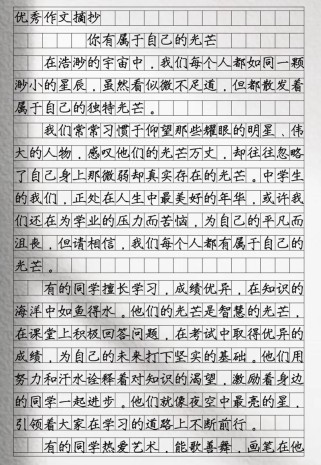 优秀作文摘抄
你有属于自己的光芒
在浩渺的宇宙中，我们每个人都如同一颗
渺小的星辰，虽然看似微不足道，但都散发着
属于自己的独特光芒。
我们常常习惯于仰望那些耀眼的明星、伟
大的人物，感叹他们的光芒万丈，却往往忽略
了自己身上那微弱却真实存在的光芒。中学生
的我们，正处在人生中最美好的年华，或许我
们还在为学业的压力而苦恼，为自己的平凡而
沮丧，但请相信，我们每个人都有属于自己的
光芒。
有的同学擅长学习，成绩优异，在知识的
海洋中如鱼得水。他们的光芒是智慧的光芒，
在课堂上积极回答问题，在考试中取得优异的
成绩，为自己的未来打下坚实的基础。他们用
努力和汗水诠释着对知识的渴望，激励着身边
的同学一起进步。他们就像夜空中最亮的星，
引领着大家在学习的道路上不断前行。
有的同学热爱艺术，能歌善舞，画笔在他